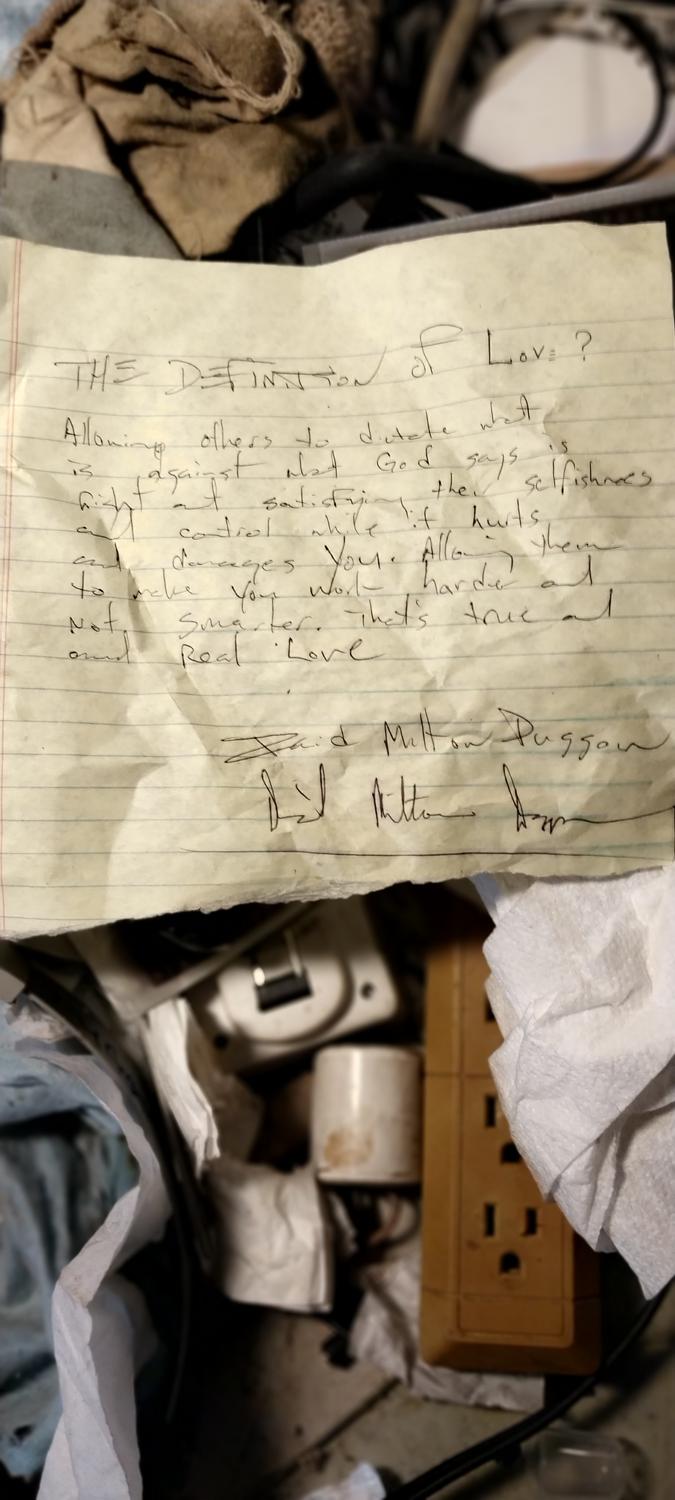 THE DEFINITION of Love?
Allowing others to dictate what
is against what God says is
right and satisfying their selfishness
and control while it hurts
and damages you. Allowing them
to make you work harder and
Not smarter. That's true and
and Real Love
David Milton Duggan
David Milton Duggan